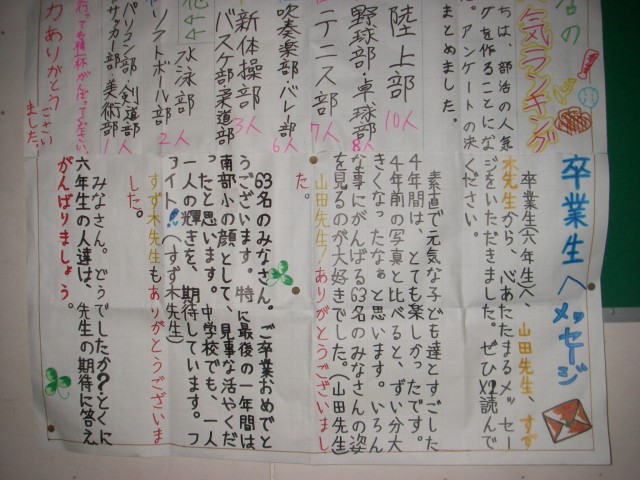 活の
気ランキング
ちは、部活の人気
グを作ることにな
、アンケートの
まとめました。
陸上部
10人
野球部・卓球部
8人
テニス部
7人
吹奏楽部・バレー部
6人
新体操部
3人
バスケ部柔道部
水泳部
ソフトボール部
2人
パソコン部・剣道部
サッカー部・美術部
1人
力ありがとうござい
ました。
卒業生へメッセージ
卒業生(六年生)へ、山田先生、すず
木先生から、心あたたまるメッセー
ジをいただきました。ぜひ×2読んで
ください。
素直で元気な子ども達とすごした
4年間は、とても楽しかったです。
4年前の写真と比べると、ずい分大
きくなったなぁと思います。いろん
な事にがんばる63名のみなさんの姿
を見るのが大好きでした。(山田先生)
山田先生!ありがとうございまし
た。
63名のみなさん。ご卒業おめでと
うございます。特に最後の一年間は
南部小の顔として、見事な活やくだ
ったと思います。中学校でも、一人
一人の輝きを、期待しています。フ
ァイト!!(すず木先生)
すず木先生もありがとうございま
した。
みなさん。どうでしたか?とくに
六年生の人達は、先生の期待に答え
がんばりましょう。